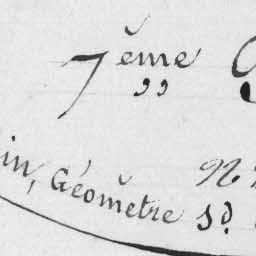 7ème
in, Géomètre Sd.